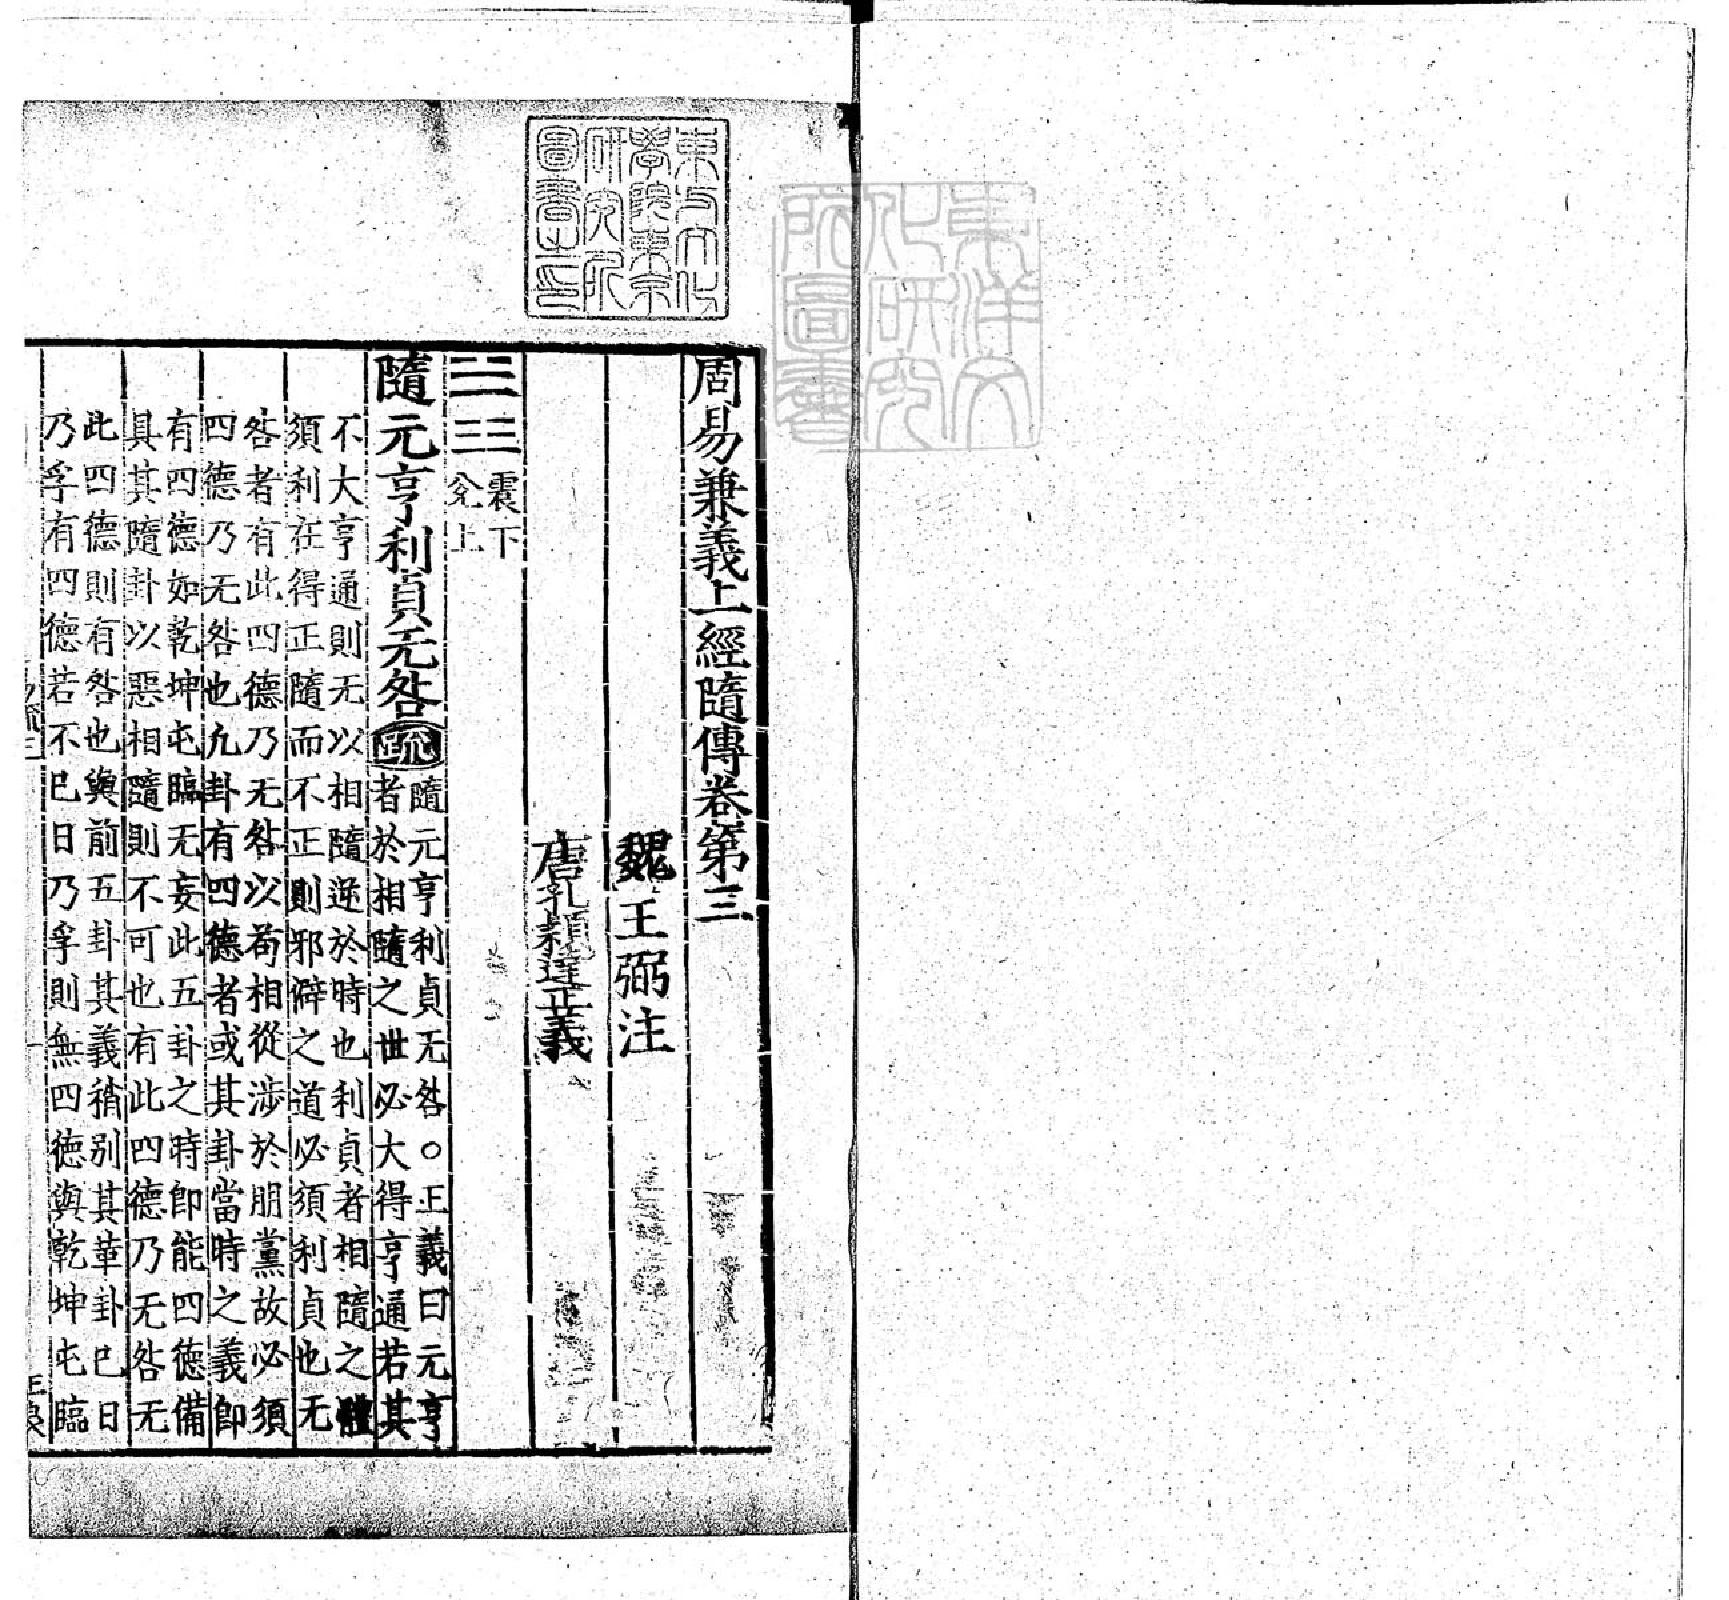 東洋文
化研究
所圖書
東方文化
學院東京
研究所
圖書之印
周易兼義上經隨傳卷第三
魏王弼注
唐孔穎達正義
☱☳震下
兌上
隨元亨利貞无咎疏隨元亨利貞无咎○正義曰元亨
者於相隨之世必大得亨通若其
不大亨通則无以相隨逆於時也利貞者相隨之體
須利在得正隨而不正則邪僻之道必須利貞也无
咎者有此四德乃无咎以苟相從涉於朋黨故必須
四德乃无咎也凡卦有四德者或其卦當時之義即
有四德如乾坤屯臨无妄此五卦之時即能四德備
具其隨卦以惡相隨則不可也有此四德乃无咎无
此四德則有咎也與前五卦其義稍別其革卦巳日
乃孚有四德若不巳日乃孚則無四德與乾坤屯臨